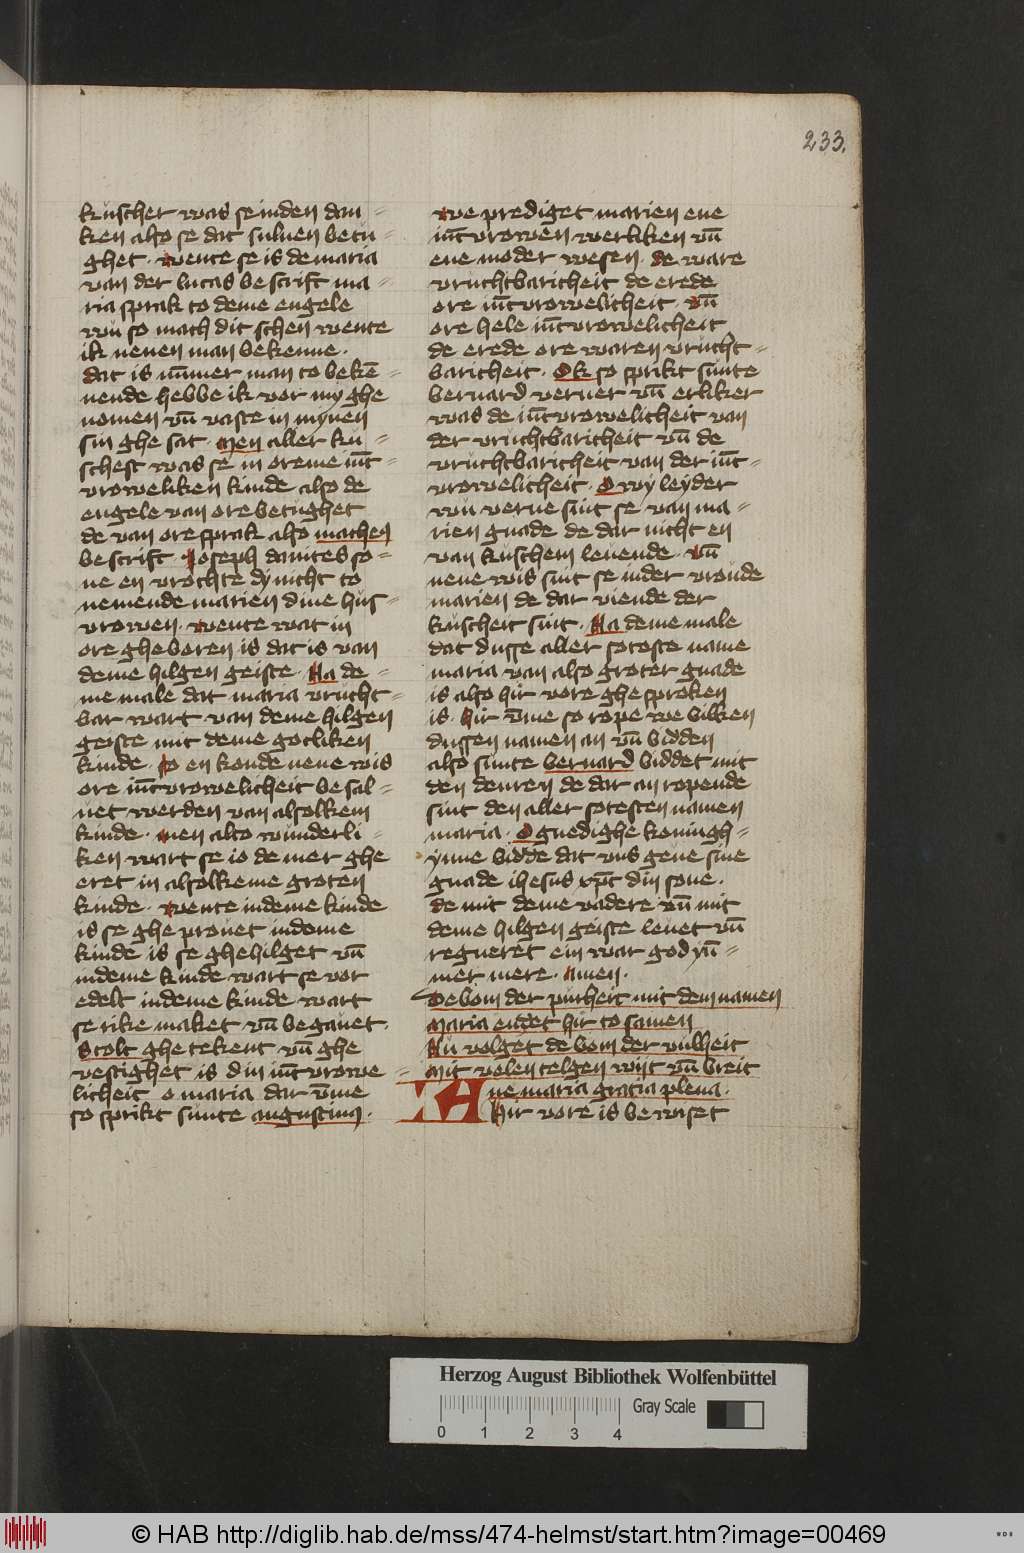 233.
kuscher was se in den dan=
ken also se dat suluen betu=
ghet · wente se is de maria
van der lucas bescrift ma=
ria sprak to deme engele
wu so mach dit schen wente
ik nenen man bekenne ·
dat is nūmer man to bekē=
nende hebbe ik vor my ghe
nomen vn̄ vaste in mynen
sin ghe sat · Men aller ku=
schest was se in oreme iūc=
vroweliken kinde also de
engele van ore betughet
de van ore sprak also matheꝯ
bescrift · Joseph dauites so=
ne en vrochte dy nicht to
nemende marien dine hus=
vrowen · wente wat in
ore gheboren is dat is van
deme hilgen geiste · Na de=
me male dat maria vrucht=
bar wart van deme hilgen
geiste mit deme gotliken
kinde · so en konde nene wis
ore iūcvrowelicheit besal=
uet werden van alsolkem
kinde · men alto wunderli=
ken wart se io de mer ghe
eret in alsolkeme groten
kinde · wente in deme kinde
is se ghe prouet in deme
kinde is se ghehilget vn̄
in deme kinde wart se vor
edelt in deme kinde wart
se rike maket vn̄ begauet ·
Stolt ghetekent vn̄ ghe
vestighet is din iūcvrowe=
licheit o maria dar vm̄e
so sprikt sunte augustinꝯ ·
we prediget marien ene
iūcvrowen werliken vn̄
ene moder wesen · de ware
vruchtbaricheit de erede
ore iūcvrowelicheit · vn̄
ore hele iūcvrowelicheit
de erede ore waren vrucht=
baricheit · Ok so sprikt sunte
bernard verner vn̄ erliker
was de iūcvrowelicheit van
der vruchtbaricheit vn̄ de
vruchtbaricheit van der iūc=
vrowelicheit · O wy leyder
wu verne sint se van ma=
rien gnade de dar nicht en
van kuschem leuende · vn̄
nene wis sint se in der vroude
marien de dar viende der
kuscheit sint · Na deme male
dat dusse aller sotoste name
maria van also groter gnade
is also hir vore ghesproken
is · hir vm̄e so rope we billken
dussen namen an vn̄ bidden
also sunte bernard biddet mit
den denren de dar an ropende
sint den aller sotesten namen
maria · O gnedighe koningh=
ynne bidde dat vns geue sine
gnade ihesus xp̄c din sone ·
de mit deme vadere vn̄ mit
deme hilgen geiste leuet vn̄
regneret ein war god yū=
mer mere · amen ·
De bom der purheit mit dem namen
Maria endet hir to samen
Nu volget de bom der vulheit
Mit velen telgen wyt vn̄ breit
Aue maria gratia plena ·
Hir vore is bewiset
Herzog August Bibliothek Wolfenbüttel
Gray Scale
0 1 2 3 4
© HAB http://diglib.hab.de/mss/474-helmst/start.htm?image=00469